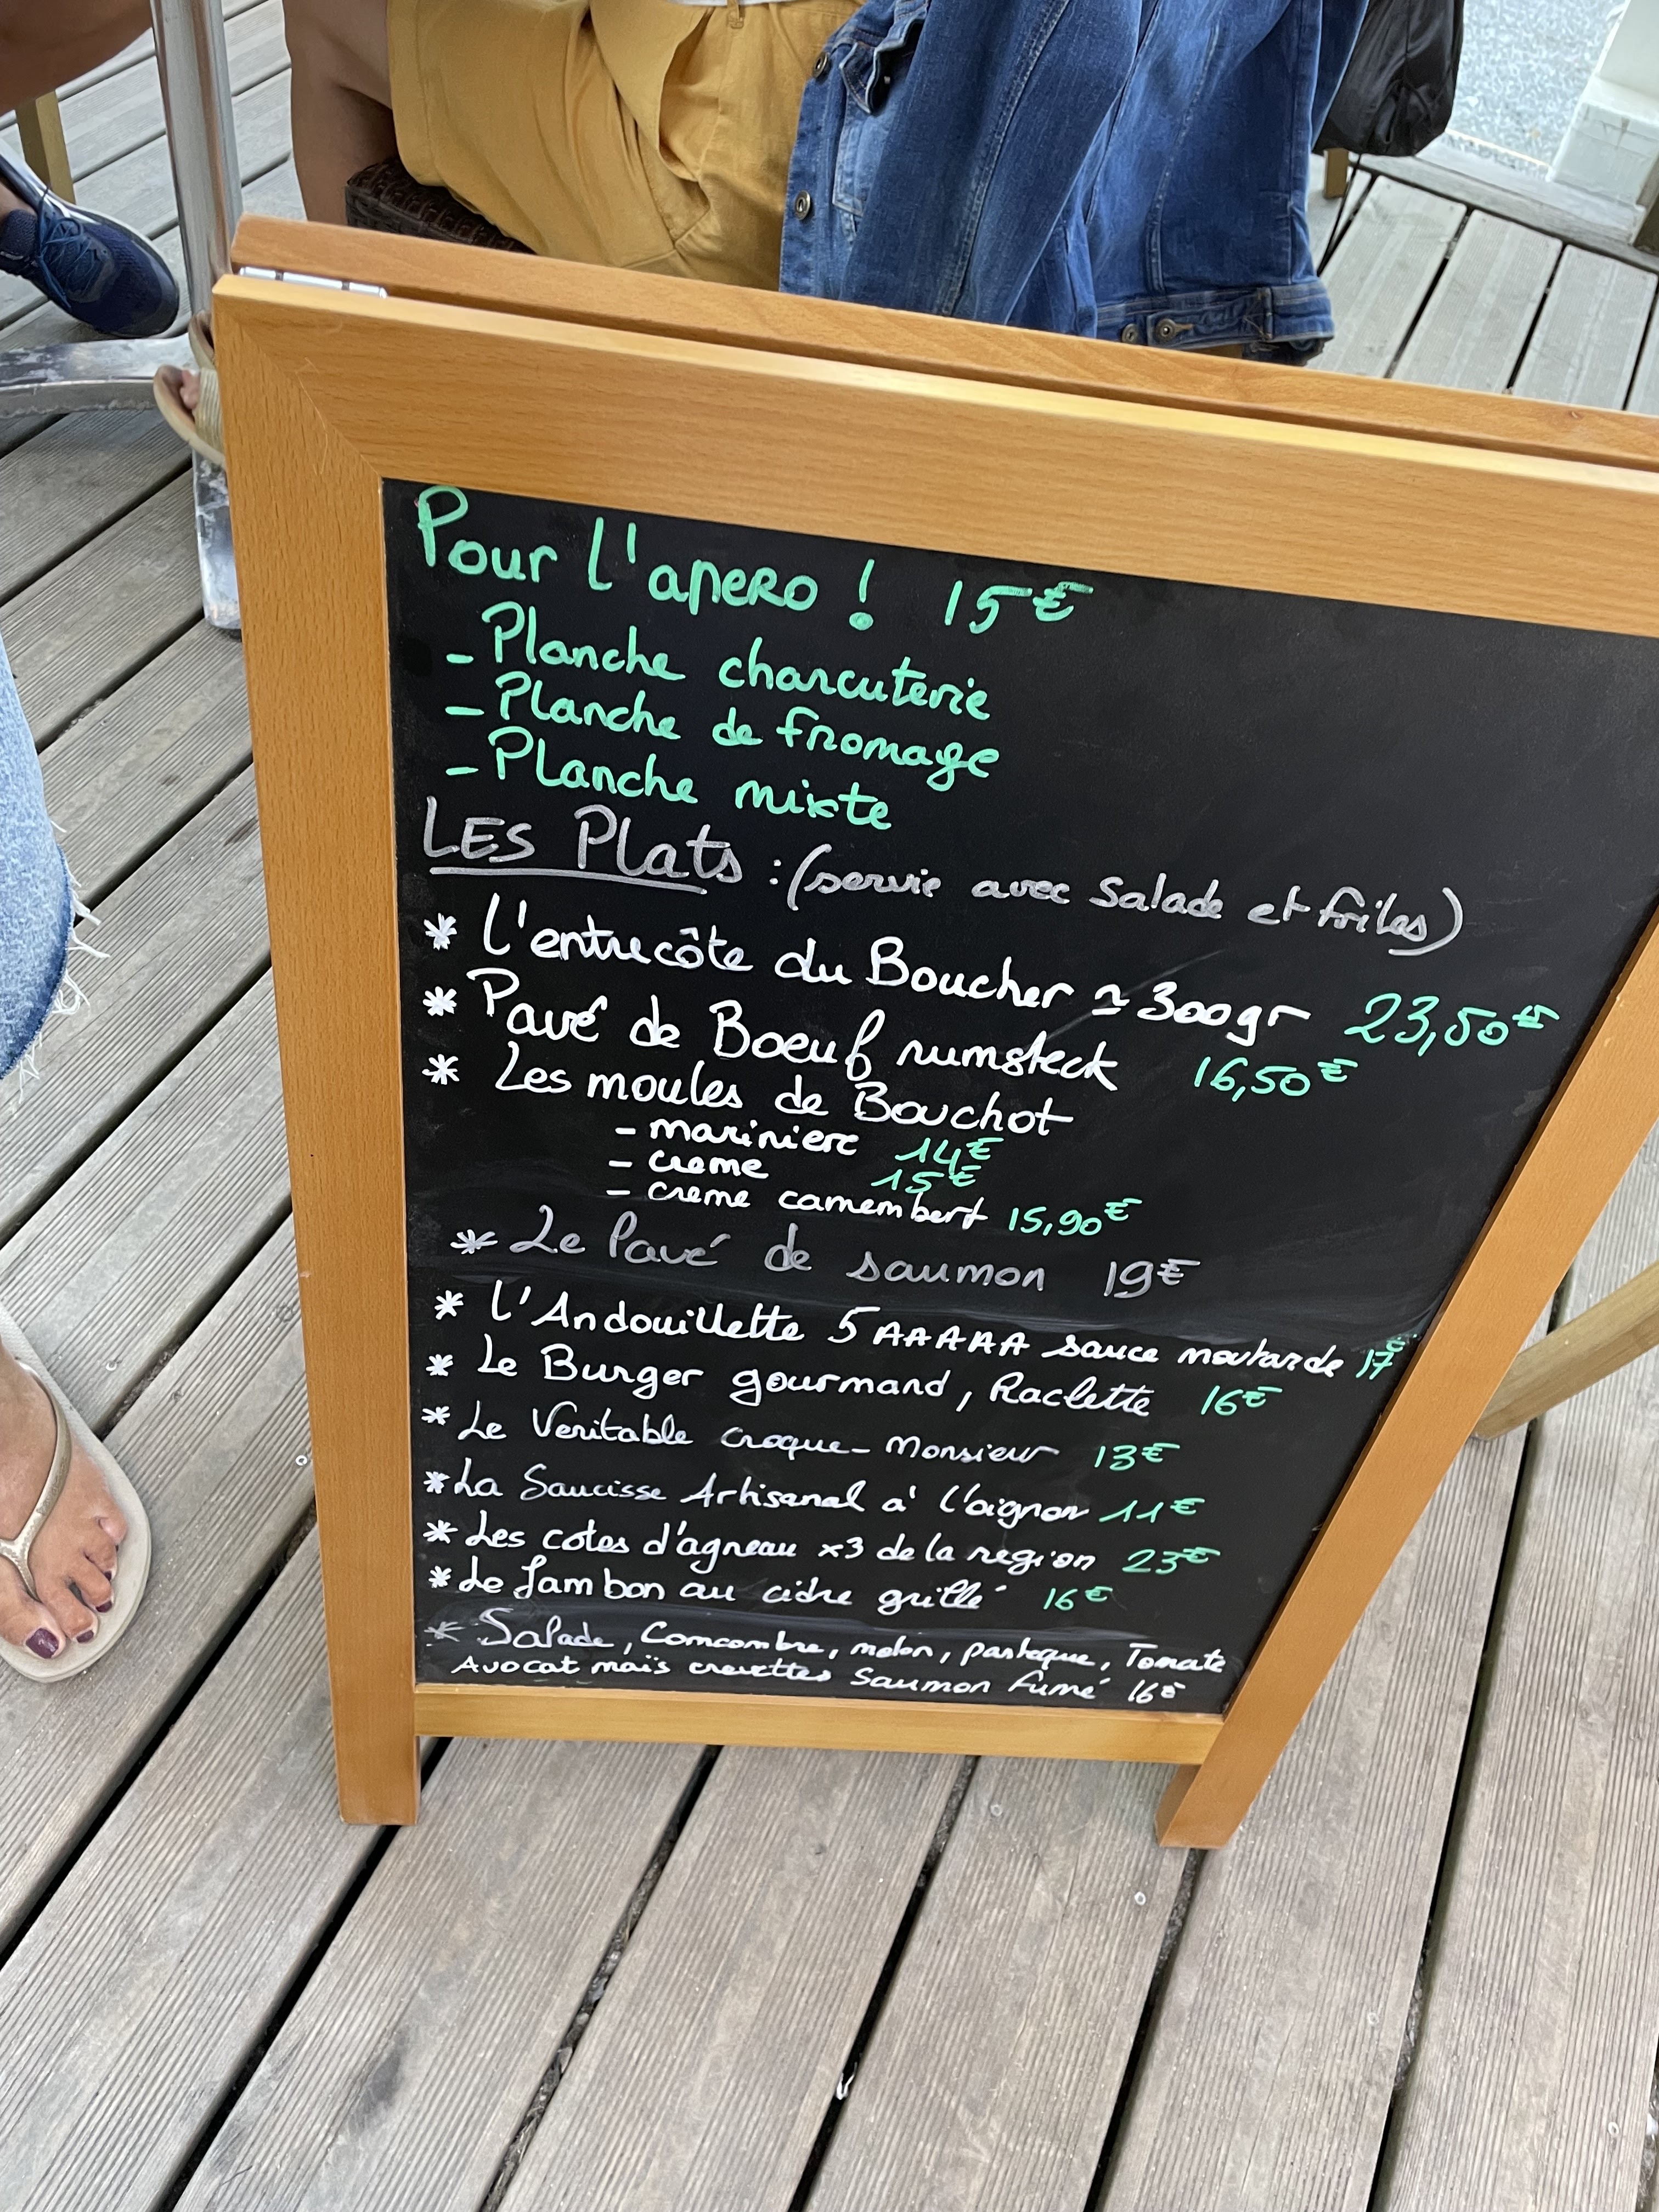 Pour l'apero ! 15€
- Planche charcuterie
- Planche de fromage
- Planche mixte
LES Plats : (servie avec Salade et frites)
* L'entrecôte du Boucher ≃ 300gr 23,50€
* Pavé de Boeuf rumsteck 16,50€
* Les moules de Bouchot
- mariniere 14€
- creme 15€
- creme camembert 15,90€
* Le Pavé de saumon 19€
* L'Andouillette 5 AAAAA sauce moutarde 17€
* Le Burger gourmand, Raclette 16€
* Le Veritable croque-Monsieur 13€
* La Saucisse Artisanal a' l'oignon 11€
* Les cotes d'agneau x3 de la region 23€
* Le Jambon au cidre grillé 16€
* Salade, Comcombre, melon, pasteque, Tomate
Avocat maïs crevettes Saumon fumé 16€